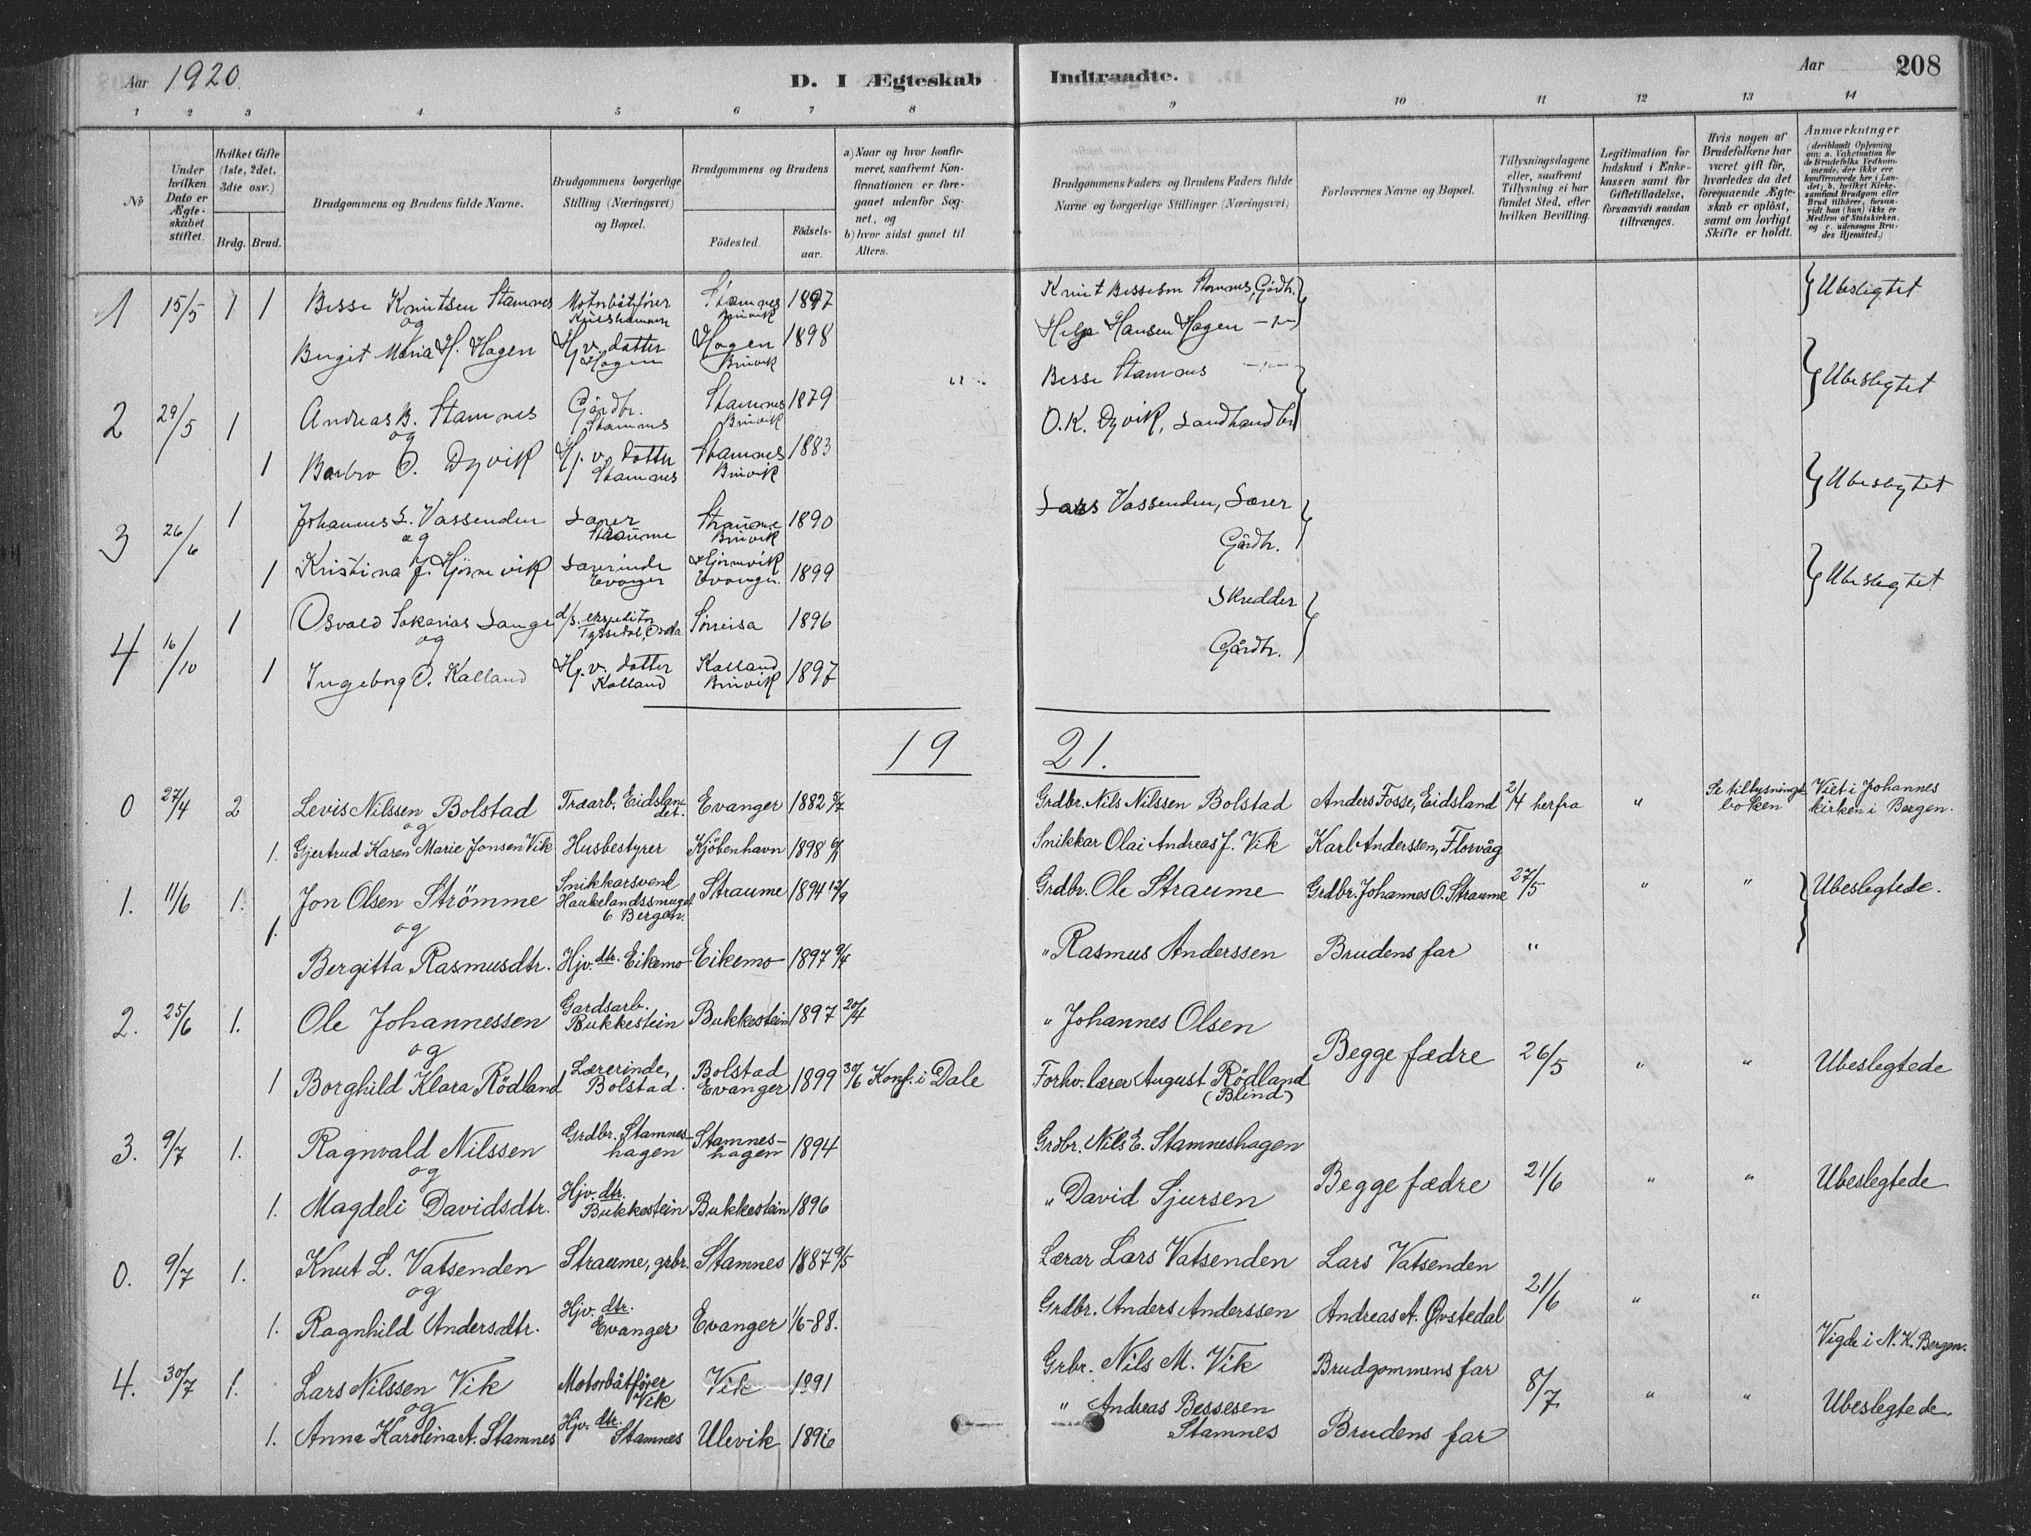 Aar 1920.
D. I Ægteskab Indtraadte.
Aar 208
1 2 3 4 5 6 7 8 9 10 11 12 13 14
No
Under hvilken Dato er Ægteskabet stiftet.
Hvilket Gifte (1ste, 2det, 3die osv.)
Brdg. Brud.
Brudgommens og Brudens fulde Navne.
Brudgommens borgerlige Stilling (Næringsvei) og Bopæl.
Brudgommens og Brudens
Fødested. Fødselsaar.
a) Naar og hvor konfirmeret, saafremt Konfirmationen er foregaaet udenfor Sognet, og
b) hvor sidst gaaet til Alters.
Brudgommens Faders og Brudens Faders fulde Navne og borgerlige Stillinger (Næringsvei)
Forlovernes Navne og Bopæl.
Tillysningsdagene eller, saafremt Tillysning ei har fundet Sted, efter hvilken Bevilling.
Legitimation for Indskud i Enkekassen samt for Giftetilladelse, forsaavidt saadan tiltrænges.
Hvis nogen af Brudefolkene har været gift før, hvorledes da det foregaaende Ægteskab er opløst, samt om lovligt Skifte er holdt.
Anmærkninger (deriblandt Oplysning om: a. Vakcination for de Brudefolks Vedkommende, der ikke ere konfirmerede her i Landet; b. hvilket Kirkesamfund Brudgom eller Brud tilhører, forsaavidt han (hun) ikke er Medlem af Statskirken, og c. udensogns Brudes Hjemsted.)
1 15/5 1 1 Besse Knutsen Stamnes Motorbåtfører Stamnes Bruvik 1897 Knut Bessesen Stamnes, Gårdbr. Ubeslegtet
og
Birgit Maria H. Hagen Hj.v. datter Hagen Hagen Bruvik 1898 Helge Hansen Hagen -"-
2 29/5 1 Andreas B. Stamnes Gårdbr. Stamnes Stamnes Bruvik 1879 Besse Stamnes -"- Ubeslegtet
og
1 Barbro O. Dyvik Hj. v. datter Stamnes Stamnes Bruvik 1883 O.K. Dyvik, Landhandler
3 26/6 1 Johannes L. Vassenden Lærer Straume Straume Bruvik 1890 Lars Vassenden, Lærer Ubeslegtet
og
1 Kristina J. Hjørnevik Lærerinde Evanger Hjørnevik Evanger. 1899 Gårdbr.
4 16/10 1 Osvald Sakarias Lange d/s. ekspeditør Tyssedal, Odda Sørreisa 1896 Skredder Ubeslegtet
og
1 Ingeborg O. Kalland Hj. v. datter Kalland Kalland Bruvik 1897 Gårdbr.
19 21.
0 27/4 2 Levis Nilssen Bolstad Træarb. Eidslandet. Evanger 1882 5/7 Grdbr. Nils Nilssen Bolstad Anders Fosse, Eidsland 2/4 herfra " Se tillysningsboken Viet i Johannes kirken i Bergen.
og
1. Gjertrud Karen Marie Jonsen Vik Husbestyrer Kjöbenhavn 1898 Snikkar Olai Andreas J. Vik Karl Anderssen, Florvåg
1. 11/6 1. Jon Olsen Strömme Snikkarsvend Haukelandssmuget 6 Bergen. Straume 1894 12/9 Grdbr. Ole Straume Grdbr. Johannes O. Straume 27/5 " " Ubeslegtede.
og
1. Bergitta Rasmusdtr. Hjv. dtr. Eikemo Eikemo 1897 9/4 " Rasmus Anderssen Brudens far "
2. 25/6 1. Ole Johannessen Gardsarb. Bukkestein Bukkestein 1897 20/4 " Johannes Olsen
og Begge fædre 26/5 " " Ubeslegtede
1 Borghild Klara Rödland Lærerinde, Bolstad. Bolstad Evanger 1899 30/6 Konf. i Dale Forhv. lærer August Rödland (Blind)
3. 9/7 1. Ragnvald Nilssen Grdbr. Stamneshagen Stamneshagen 1894 Grdbr. Nils E. Stamneshagen
og Begge fædre 21/6 " " Ubeslegtede
1. Magdeli Davidsdtr. Hjv. dtr. Bukkestein Bukkestein 1896 " David Sjursen
0. 9/7 1. Knut L. Vatsenden Straume, grbr. Stamnes 1887 9/5 Lærar Lars Vatsenden Lars Vatsenden
og 21/6 " "
1. Ragnhild Andersdtr. Hjv. dtr. Evanger Evanger 1/6-88. Grdbr. Anders Anderssen Andreas A. Øvstedal
Vigde i N. K. Bergen.
4. 30/7 1. Lars Nilssen Vik Motorbåtfører Vik Vik 1891 Grbr. Nils M. Vik Brudgommens far
og 8/7 " " Ubeslegtede.
1. Anna Karolina A. Stamnes Hjv. dtr. Stamnes Ulevik 1896 " Andreas Bessesen Stamnes Brudens far